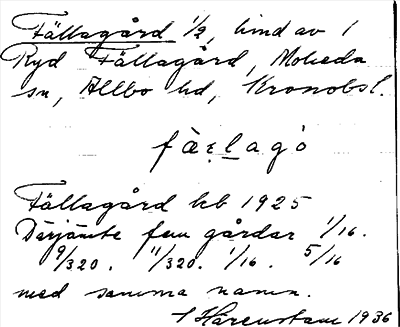 Fällagård 1/2, hmd av 1
Ryd Fällagård, Moheda
sn, Allbo hd, Kronobsl.
fä̀ɛ̣lagò
Fällagård kb 1925
Därjämte fem gårdar 1/16.
9/320. 11/320. 1/16. 5/16
med samma namn.
Hårenstam 1936